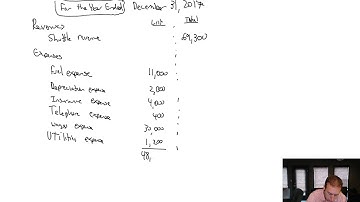 For the Year Ended December 31, 2017
List Total
Revenues
Shuttle revenue 69,300
Expenses
Fuel expense 11,000
Depreciation expense 2,000
Insurance expense 4,000
Telephone expense 400
Wages expense 30,000
Utilities expense 1,200
48,